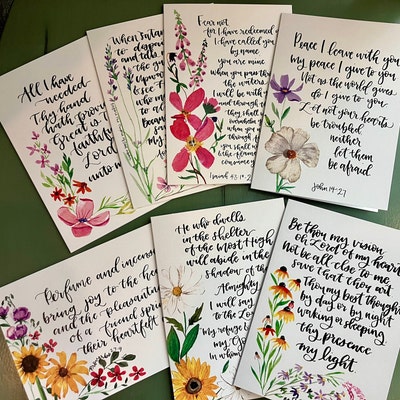 All I have
needed
Thy hand
hath provi
Great is t
faithful
Lord
unto m
When Satan
to
and tells
Upwar
see
who m
to
Becau
my
Fear not
for I have redeemed
I have called
you by
name
you are mine
when you pass thr
the waters
I will be with
and through
they shall
overwhelm
when you
through
you shall
the flame
consume
Isaiah 43:1-2
Peace I leave with you
my peace I give to you
Not as the world gives
do I give to you
Let not your hearts
be troubled
neither
let them
be afraid
John 14:27
Perfume and incense
bring joy to the hea
and the pleasantn
of a friend spri
their heartfelt
He who dwells
in the shelter
of the Most High
will abide in the
shadow of th
Almighty
I will say
to the Lor
my refuge
my G
in whom
Be thou my vision
oh Lord of my heart
Not be all else to me
save that thou art
Thou my best thought
by day or by night
waking or sleeping
thy presence
my light